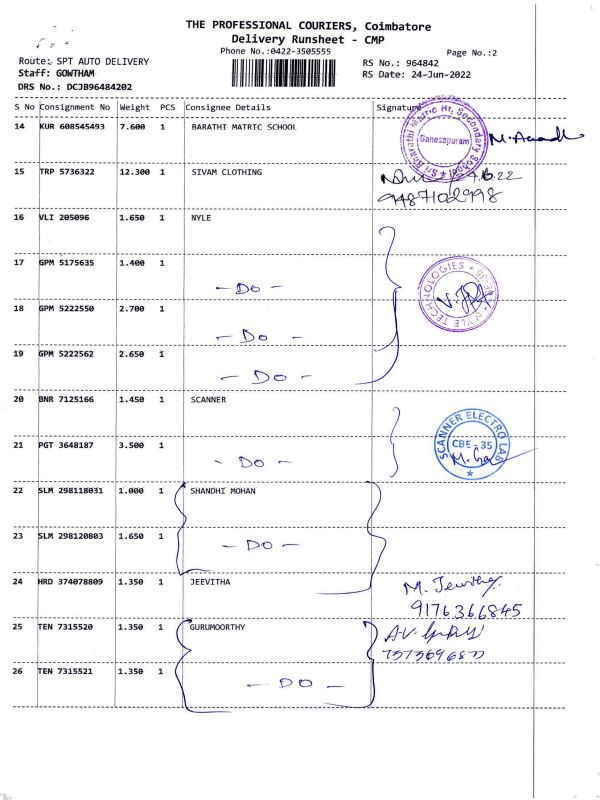 THE PROFESSIONAL COURIERS, Coimbatore
Delivery Runsheet - CMP
Phone No.:0422-3505555
Page No.:2
Route: SPT AUTO DELIVERY
RS No.: 964842
Staff: GOWTHAM
RS Date: 24-Jun-2022
DRS No.: DCJB96484202
S No Consignment No Weight PCS Consignee Details Signature
14 KUR 608545493 7.600 1 BARATHI MATRIC SCHOOL
Sri Bharathi Matric Hr. Secondary School
Ganesapuram
15 TRP 5736322 12.300 1 SIVAM CLOTHING
9487102998
16 VLI 205096 1.650 1 NYLE
17 GPM 5175635 1.400 1
- DO -
NYLE TECHNOLOGIES
18 GPM 5222550 2.700 1
- DO -
19 GPM 5222562 2.650 1
- DO -
20 BNR 7125166 1.450 1 SCANNER
SCANNER ELECTRO LAB
CBE - 35
21 PGT 3648187 3.500 1
- DO -
22 SLM 298118031 1.000 1 SHANDHI MOHAN
23 SLM 298120803 1.650 1
- DO -
24 HRD 374078809 1.350 1 JEEVITHA
9176366845
25 TEN 7315520 1.350 1 GURUMOORTHY
26 TEN 7315521 1.350 1
- DO -